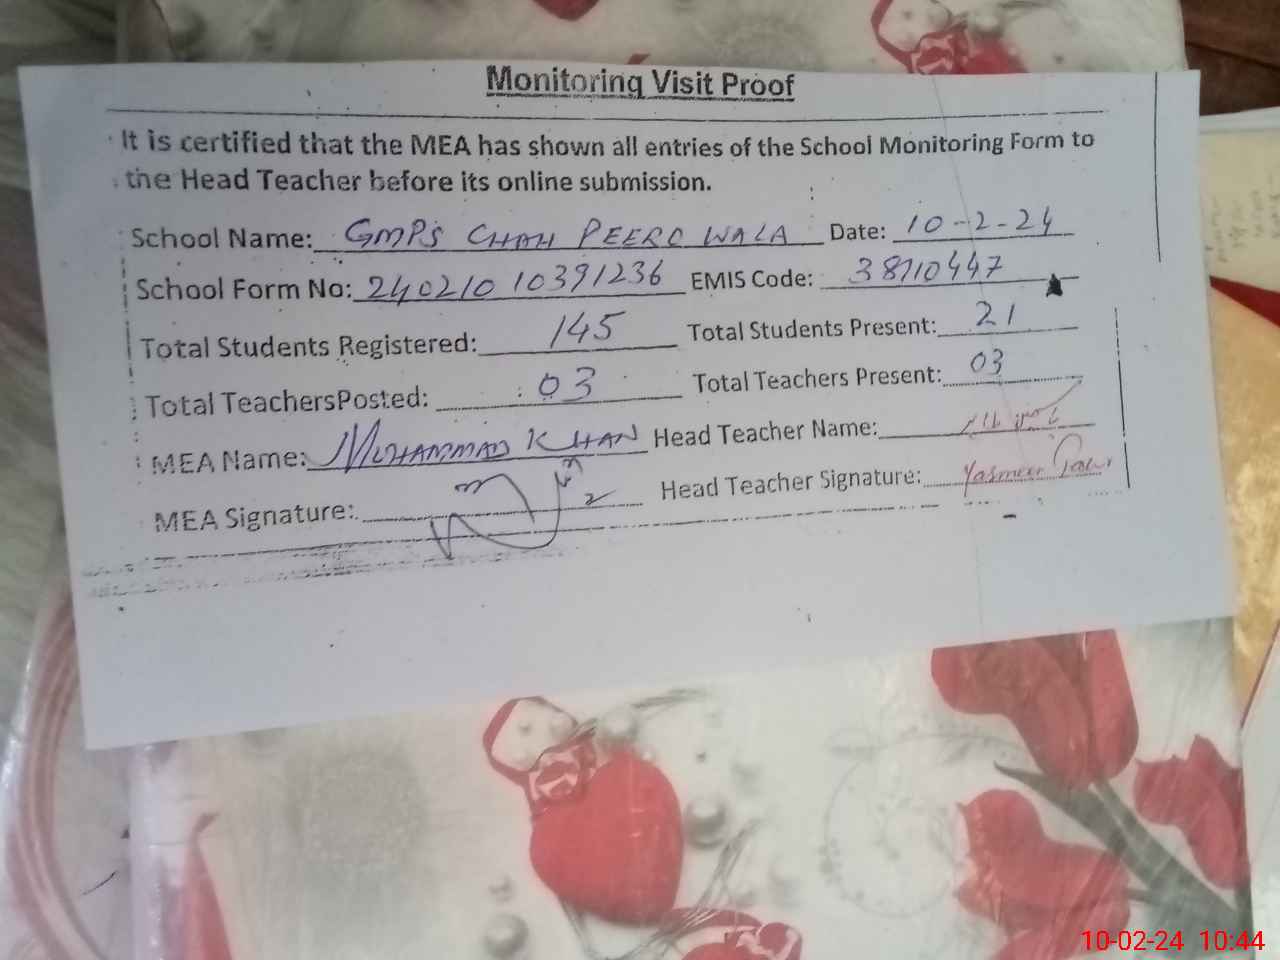 Monitoring Visit Proof
It is certified that the MEA has shown all entries of the School Monitoring Form to
the Head Teacher before its online submission.
School Name: GMPS CHAH PEERO WALA Date: 10-2-24
School Form No: 240210 10391236 EMIS Code: 38710447
Total Students Registered: 145 Total Students Present: 21
Total TeachersPosted: 03 Total Teachers Present: 03
MEA Name: MUHAMMAD KHAN Head Teacher Name:
MEA Signature: Head Teacher Signature: Yasmeen
10-02-24 10:44